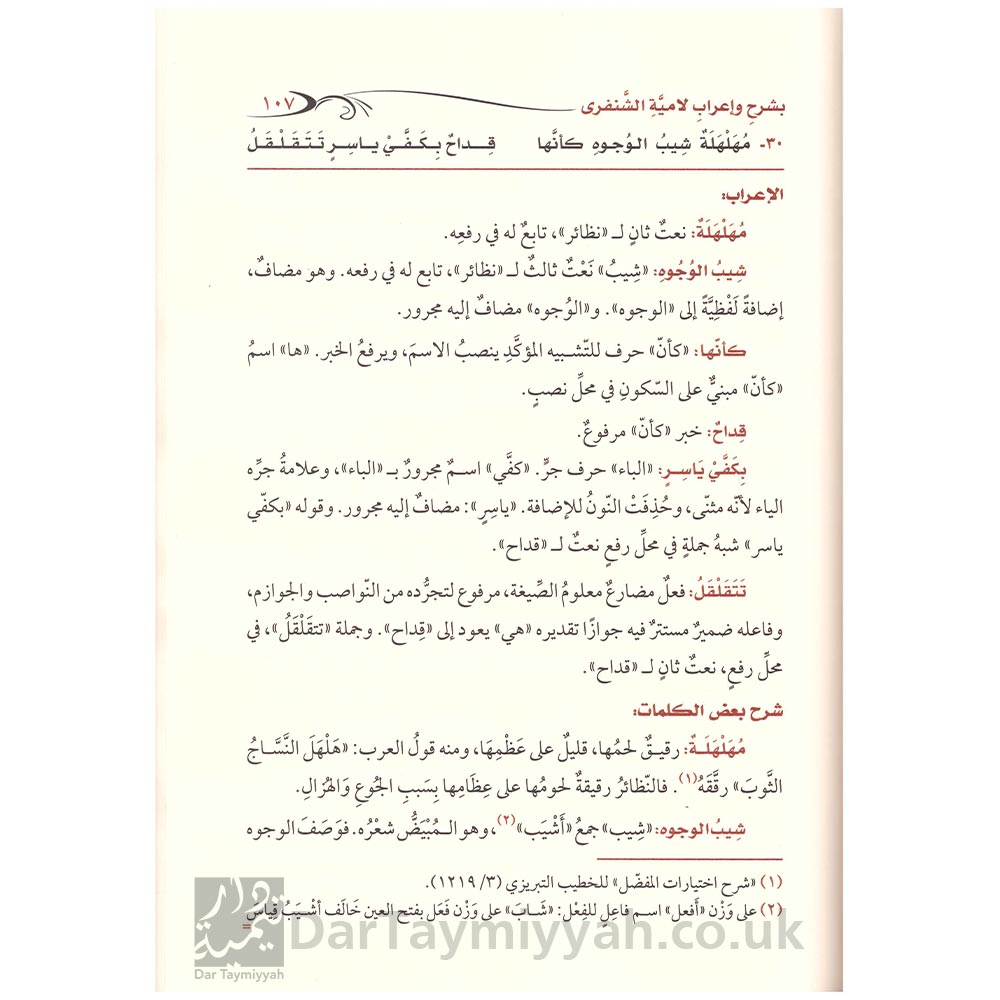 بشرحِ وإعرابِ لاميَّةِ الشَّنفرى ١٠٧
٣٠- مُهَلْهَلَةٌ شِيبُ الوُجوهِ كأنَّها قِداحٌ بِكَفَّيْ ياسِرٍ تَتَقَلْقَلُ
الإعراب:
مُهَلْهَلَةٌ: نعتٌ ثانٍ لـ «نظائر»، تابعٌ له في رفعِه.
شِيبُ الوُجُوهِ: «شِيبُ» نَعْتٌ ثالثٌ لـ «نظائر»، تابع له في رفعه. وهو مضافٌ،
إضافةً لَفْظِيَّةً إلى «الوجوه». و«الوُجوه» مضافٌ إليه مجرور.
كأنّها: «كأنّ» حرف للتّشبيه المؤكَّدِ ينصبُ الاسمَ، ويرفعُ الخبر. «ها» اسمُ
«كأنّ» مبنيٌّ على السّكونِ في محلِّ نصبٍ.
قِداحٌ: خبر «كأنّ» مرفوعٌ.
بِكَفَّيْ يَاسِرٍ: «الباء» حرف جرٍّ. «كفَّي» اسمٌ مجرورٌ بـ «الباء»، وعلامةُ جرِّه
الياء لأنّه مثنّى، وحُذِفَتْ النّونُ للإضافة. «ياسِرٍ»: مضاف إليه مجرور. وقوله «بكفّي
ياسر» شبهُ جملةٍ في محلِّ رفعٍ نعتٌ لـ «قداح».
تَتَقَلْقَلُ: فعلٌ مضارعٌ معلومُ الصِّيغة، مرفوع لتجرُّده من النّواصب والجوازم،
وفاعله ضميرٌ مستترٌ فيه جوازًا تقديره «هي» يعود إلى «قِداح». وجملة «تتقَلْقَلُ»، في
محلِّ رفعٍ، نعتٌ ثان لـ «قداح».
شرح بعض الكلمات:
مُهَلْهَلَةٌ: رقيقٌ لحمُها، قليلٌ على عَظْمِهَا، ومنه قولُ العرب: «هَلْهَلَ النَّسَّاجُ
الثَّوبَ» رقَّقَهُ(١). فالنّظائرُ رقيقةٌ لحومُها على عِظَامِها بِسَببِ الجُوعِ وَالهُزالِ.
شِيبُ الوجوه: «شِيب» جمعُ «أَشْيَب»(٢)، وهو المُبْيَضُّ شعْرُه. فوَصَفَ الوجوه
(١) «شرح اختيارات المفضّل» للخطيب التبريزي (٣/ ١٢١٩).
(٢) على وَزْن «أفعل» اسم فاعِلٍ للفِعْل: «شَابَ» على وَزْن فَعَل بفتح العين خَالَف أشْيَبُ قِياسَ =
دار تيمية
Dar Taymiyyah
DarTaymiyyah.co.uk